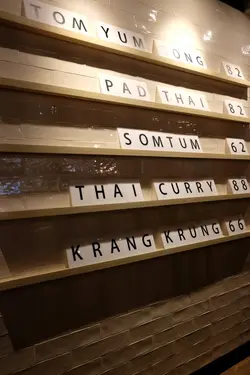 TOM YUM GONG 82
PAD THAI 82
SOMTUM 62
THAI CURRY 88
KRANG KRUNG 66